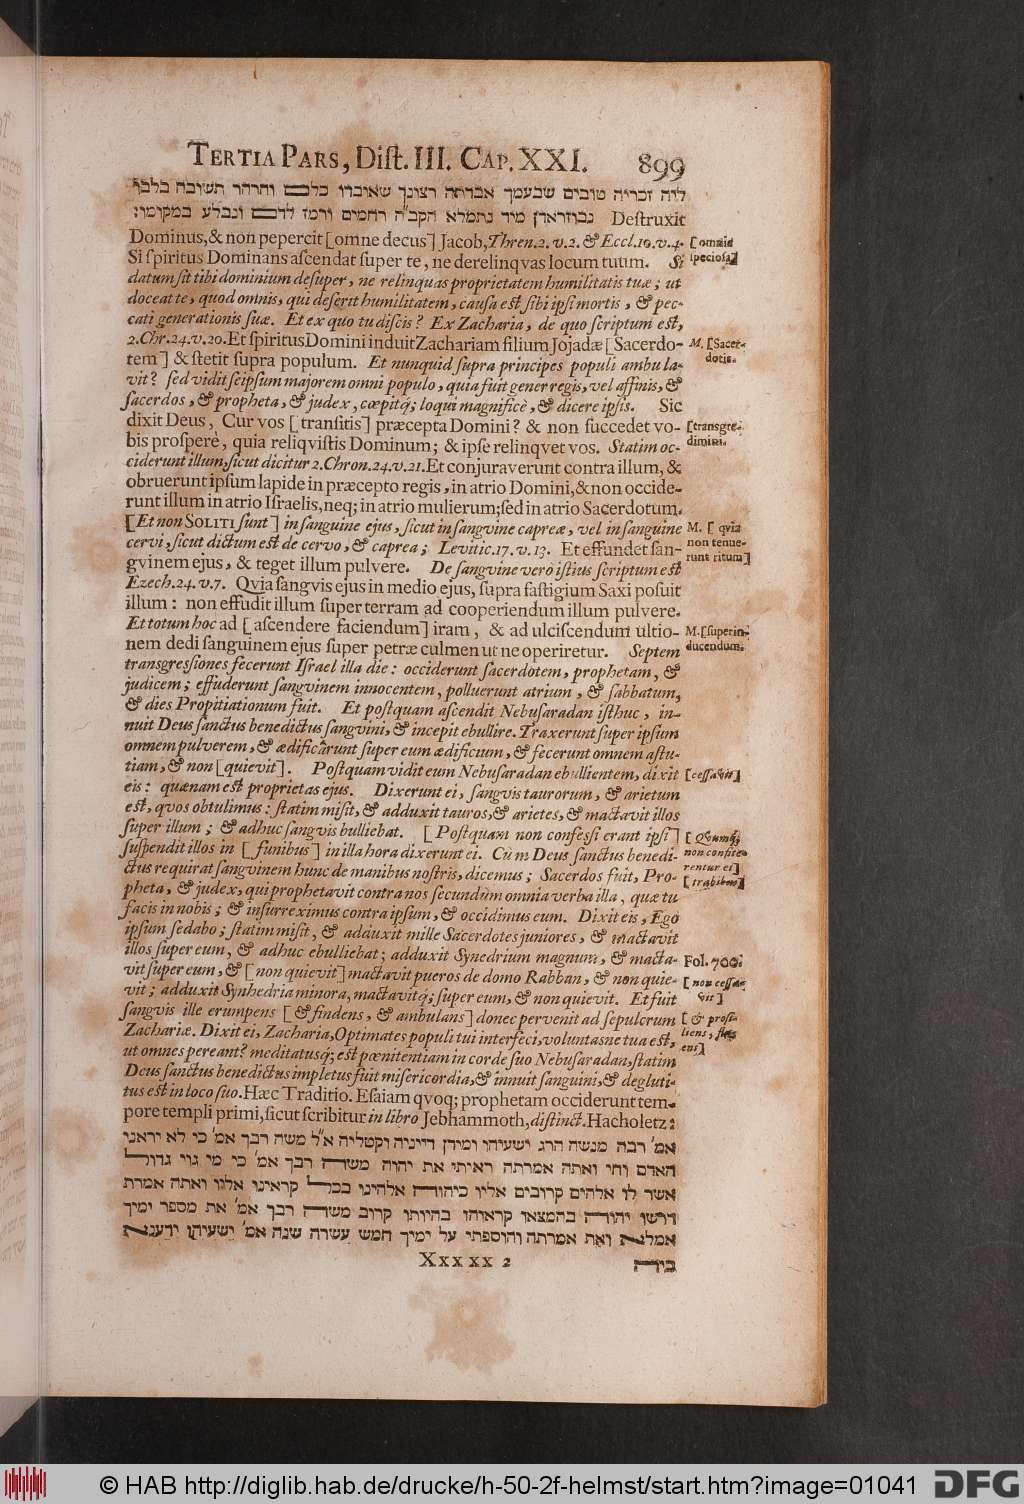 TERTIA PARS, Dist. III. CAP. XXI. 899
ליה זכריה טובים שבעמך אבדתה רצונך שאיבדו כלם והרהר תשובה בלבו
נבוזראדן מיד נתמלא הקב״ה רחמים ורמז לדם ונבלע במקומו: Destruxit
Dominus, & non pepercit [omne decus] Jacob, Thren. 2. v. 2. & Eccl. 10. v. 4. [omnia
Si spiritus Dominans ascendat super te, ne derelinqvas locum tuum. Si speciosa]
datum sit tibi dominium desuper, ne relinquas proprietatem humilitatis tuæ; ut
doceat te, quod omnis, qui deserit humilitatem, causa est sibi ipsi mortis, & pec-
cati generationis suæ. Et ex quo tu discis? Ex Zacharia, de quo scriptum est,
2. Chr. 24. v. 20. Et spiritus Domini induit Zachariam filium Jojadæ [Sacerdo- M. [Sacer-
tem] & stetit supra populum. Et nunquid supra principes populi ambula- dotis.
vit? sed vidit seipsum majorem omni populo, quia fuit gener regis, vel affinis, &
sacerdos, & propheta, & judex, cœpitq; loqui magnificè, & dicere ipsis. Sic
dixit Deus, Cur vos [transitis] præcepta Domini? & non succedet vo- [transgre-
bis prosperè, quia reliqvistis Dominum; & ipse relinqvet vos. Statim oc- dimini.
ciderunt illum, sicut dicitur 2. Chron. 24. v. 21. Et conjuraverunt contra illum, &
obruerunt ipsum lapide in præcepto regis, in atrio Domini, & non occide-
runt illum in atrio Israelis, neq; in atrio mulierum; sed in atrio Sacerdotum.
[Et non SOLITI sunt] in sanguine ejus, sicut in sangvine capreæ, vel in sanguine M. [qvia
cervi, sicut dictum est de cervo, & caprea; Levitic. 17. v. 13. Et effundet san- non tenue-
gvinem ejus, & teget illum pulvere. De sangvine vero istius scriptum est runt ritum]
Ezech. 24. v. 7. Qvia sangvis ejus in medio ejus, supra fastigium Saxi posuit
illum: non effudit illum super terram ad cooperiendum illum pulvere.
Et totum hoc ad [ascendere faciendum] iram, & ad ulciscendum ultio- M. [superin-
nem dedi sanguinem ejus super petræ culmen ut ne operiretur. Septem ducendum.
transgressiones fecerunt Israel illa die: occiderunt sacerdotem, prophetam, &
judicem; effuderunt sangvinem innocentem, polluerunt atrium, & sabbatum,
& dies Propitiationum fuit. Et postquam ascendit Nebusaradan isthuc, in-
nuit Deus sanctus benedictus sangvini, & incepit ebullire. Traxerunt super ipsum
omnem pulverem, & ædificârunt super eum ædificium, & fecerunt omnem astu-
tiam, & non [quievit]. Postquam vidit eum Nebusaradan ebullientem, dixit [cessavit]
eis: quænam est proprietas ejus. Dixerunt ei, sangvis taurorum, & arietum
est, qvos obtulimus: statim misit, & adduxit tauros, & arietes, & mactavit illos
super illum; & adhuc sangvis bulliebat. [Postquam non confessi erant ipsi] [Qvumq;
suspendit illos in [funibus] in illa hora dixerunt ei. Cùm Deus sanctus benedi- non confite-
ctus requirat sangvinem hunc de manibus nostris, dicemus; Sacerdos fuit, Pro- rentur ei]
pheta, & judex, qui prophetavit contra nos secundùm omnia verba illa, quæ tu [trabibus]
facis in nobis; & insurreximus contra ipsum, & occidimus eum. Dixit eis, Ego
ipsum sedabo; statim misit, & adduxit mille Sacerdotes juniores, & mactavit
illos super eum, & adhuc ebulliebat; adduxit Synedrium magnum, & macta- Fol. 700.
vit super eum, & [non quievit] mactavit pueros de domo Rabban, & non quie- [non cessa-
vit; adduxit Synhedria minora, mactavitq; super eum, & non quievit. Et fuit vit]
sangvis ille erumpens [& findens, & ambulans] donec pervenit ad sepulcrum [& prosi-
Zachariæ. Dixit ei, Zacharia, Optimates populi tui interfeci, voluntasne tua est, liens,
ut omnes pereant? meditatusq; est pœnitentiam in corde suo Nebusaradan, statim ens]
Deus sanctus benedictus impletus fuit misericordia, & innuit sanguini, & degluti-
tus est in loco suo. Hæc Traditio. Esaiam qvoq; prophetam occiderunt tem-
pore templi primi, sicut scribitur in libro Jebhammoth, distinct. Hacholetz:
אמ׳ רבה מנשה הרג ישעיהו ומידן דייניה וקטליה א״ל משה רבך אמ׳ כי לא יראני
האדם וחי ואתה אמרתה ראיתי את יהוה משה רבך אמ׳ כי מי גוי גדול
אשר לו אלהים קרובים אליו כיהוה אלהינו בכל קראינו אלוו ואתה אמרת
דרשו יהוה בהמצאו קראוהו בהיותו קרוב משה רבך אמ׳ את מספר ימיך
אמלא ואת אמרתה והוספתי על ימיך חמש עשרה שנה אמ׳ ישעיהו ידענא
Xxx xx 2 ביה
© HAB http://diglib.hab.de/drucke/h-50-2f-helmst/start.htm?image=01041 DFG